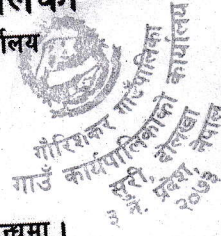 र्यालय
गौरिशंकर गाउँपालिका
गाउँ कार्यपालिकाको कार्यालय
सुरी, दोलखा
३ नं. प्रदेश नेपाल
२०७३